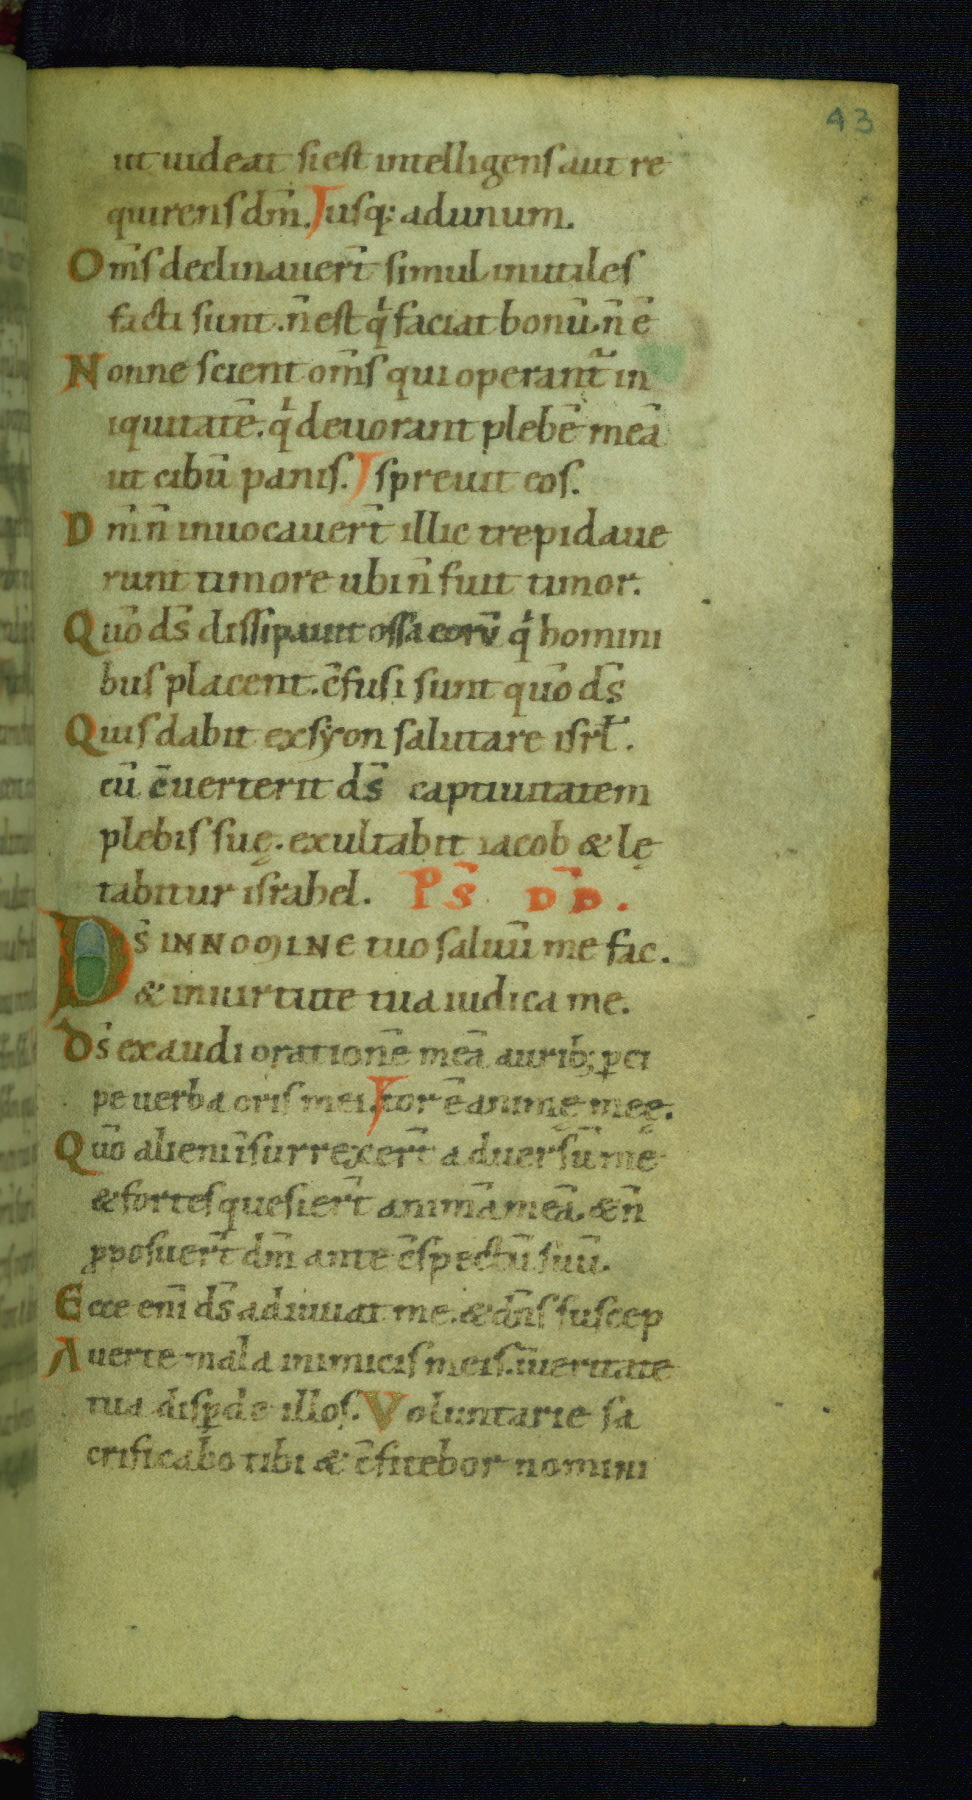 43
ut uideat si est intelligens aut re
quirens dm̄. Jusq; ad unum.
Om̄s declinauer̄t simul inutiles
facti sunt. n̄ est qͥ faciat bonū. n̄ ē
Nonne scient om̄s qui operant᷑ in
iquitatē. qͥ deuorant plebē meā
ut cibū panis. J spreuit eos.
Dm̄ n̄ inuocauer̄t illic trepidaue
runt timore ubi n̄ fuit timor.
Quō ds̄ dissipauit ossa eorū qͥ homini
bus placent. c̄fusi sunt quō ds̄
Quis dabit ex syon salutare isrł.
cū c̄uerterit ds̄ captiuitatem
plebis suę. exultabit iacob & lę
tabitur israhel. PS̄ DD̄.
Ds̄ IN NOMINE tuo saluū me fac.
& in uirtute tua iudica me.
Ds̄ exaudi orationē meā aurib; ꝑci
pe uerba oris mei. J cor ē animę meę.
Quō alieni īsurrexer̄t aduersū me
& fortes quesier̄t animā meā. & n̄
ꝓposuer̄t dm̄ ante c̄spectū suū.
Ecce eni̅ ds̄ adiuuat me. & dn̄s suscep
Auerte mala inimicis meis. ī ueritate
tua disꝑde illos. Voluntarie sa
crificabo tibi & c̄fitebor nomini